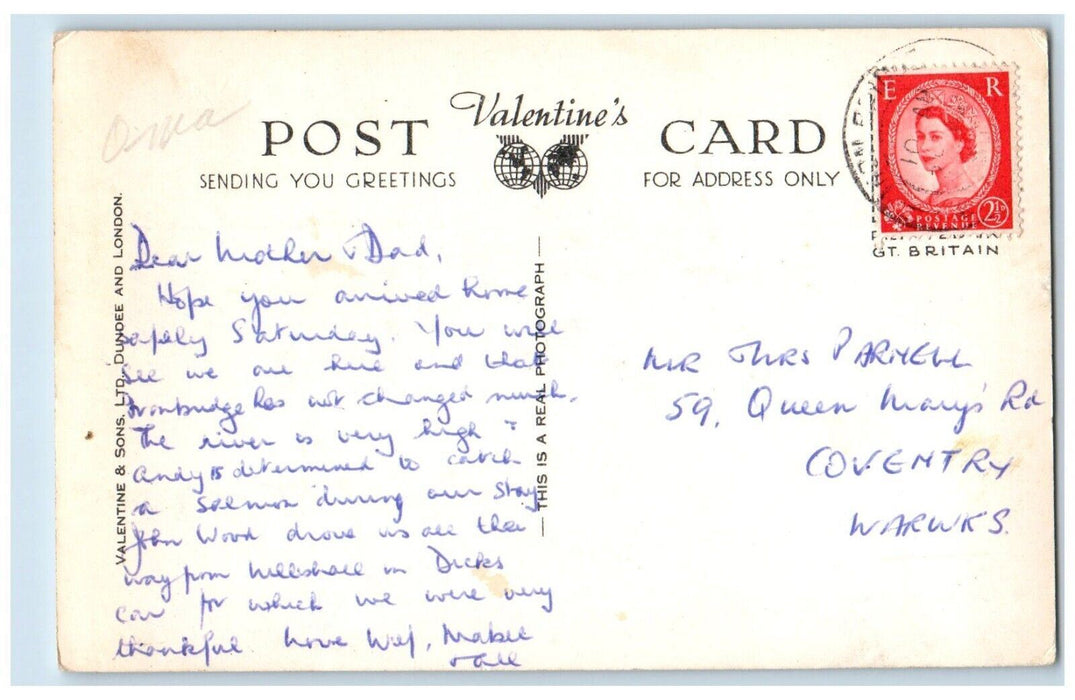 Valentine's
POST CARD
SENDING YOU GREETINGS
FOR ADDRESS ONLY
E R
POSTAGE
REVENUE
2½D
GT. BRITAIN
VALENTINE & SONS, LTD. DUNDEE AND LONDON.
THIS IS A REAL PHOTOGRAPH
Dear Mother & Dad,
Hope you arrived home
safely Saturday. You will
see we are here and that
Ironbridge has not changed much.
The river is very high &
Andy is determined to catch
a salmon during our stay
John Wood drove us all the
way from Wellshall in Dicks
car for which we were very
thankful. Love Wilf, Mabel
& all
MR & MRS PARNELL
59, Queen Mary's Rd
COVENTRY
WARWKS.